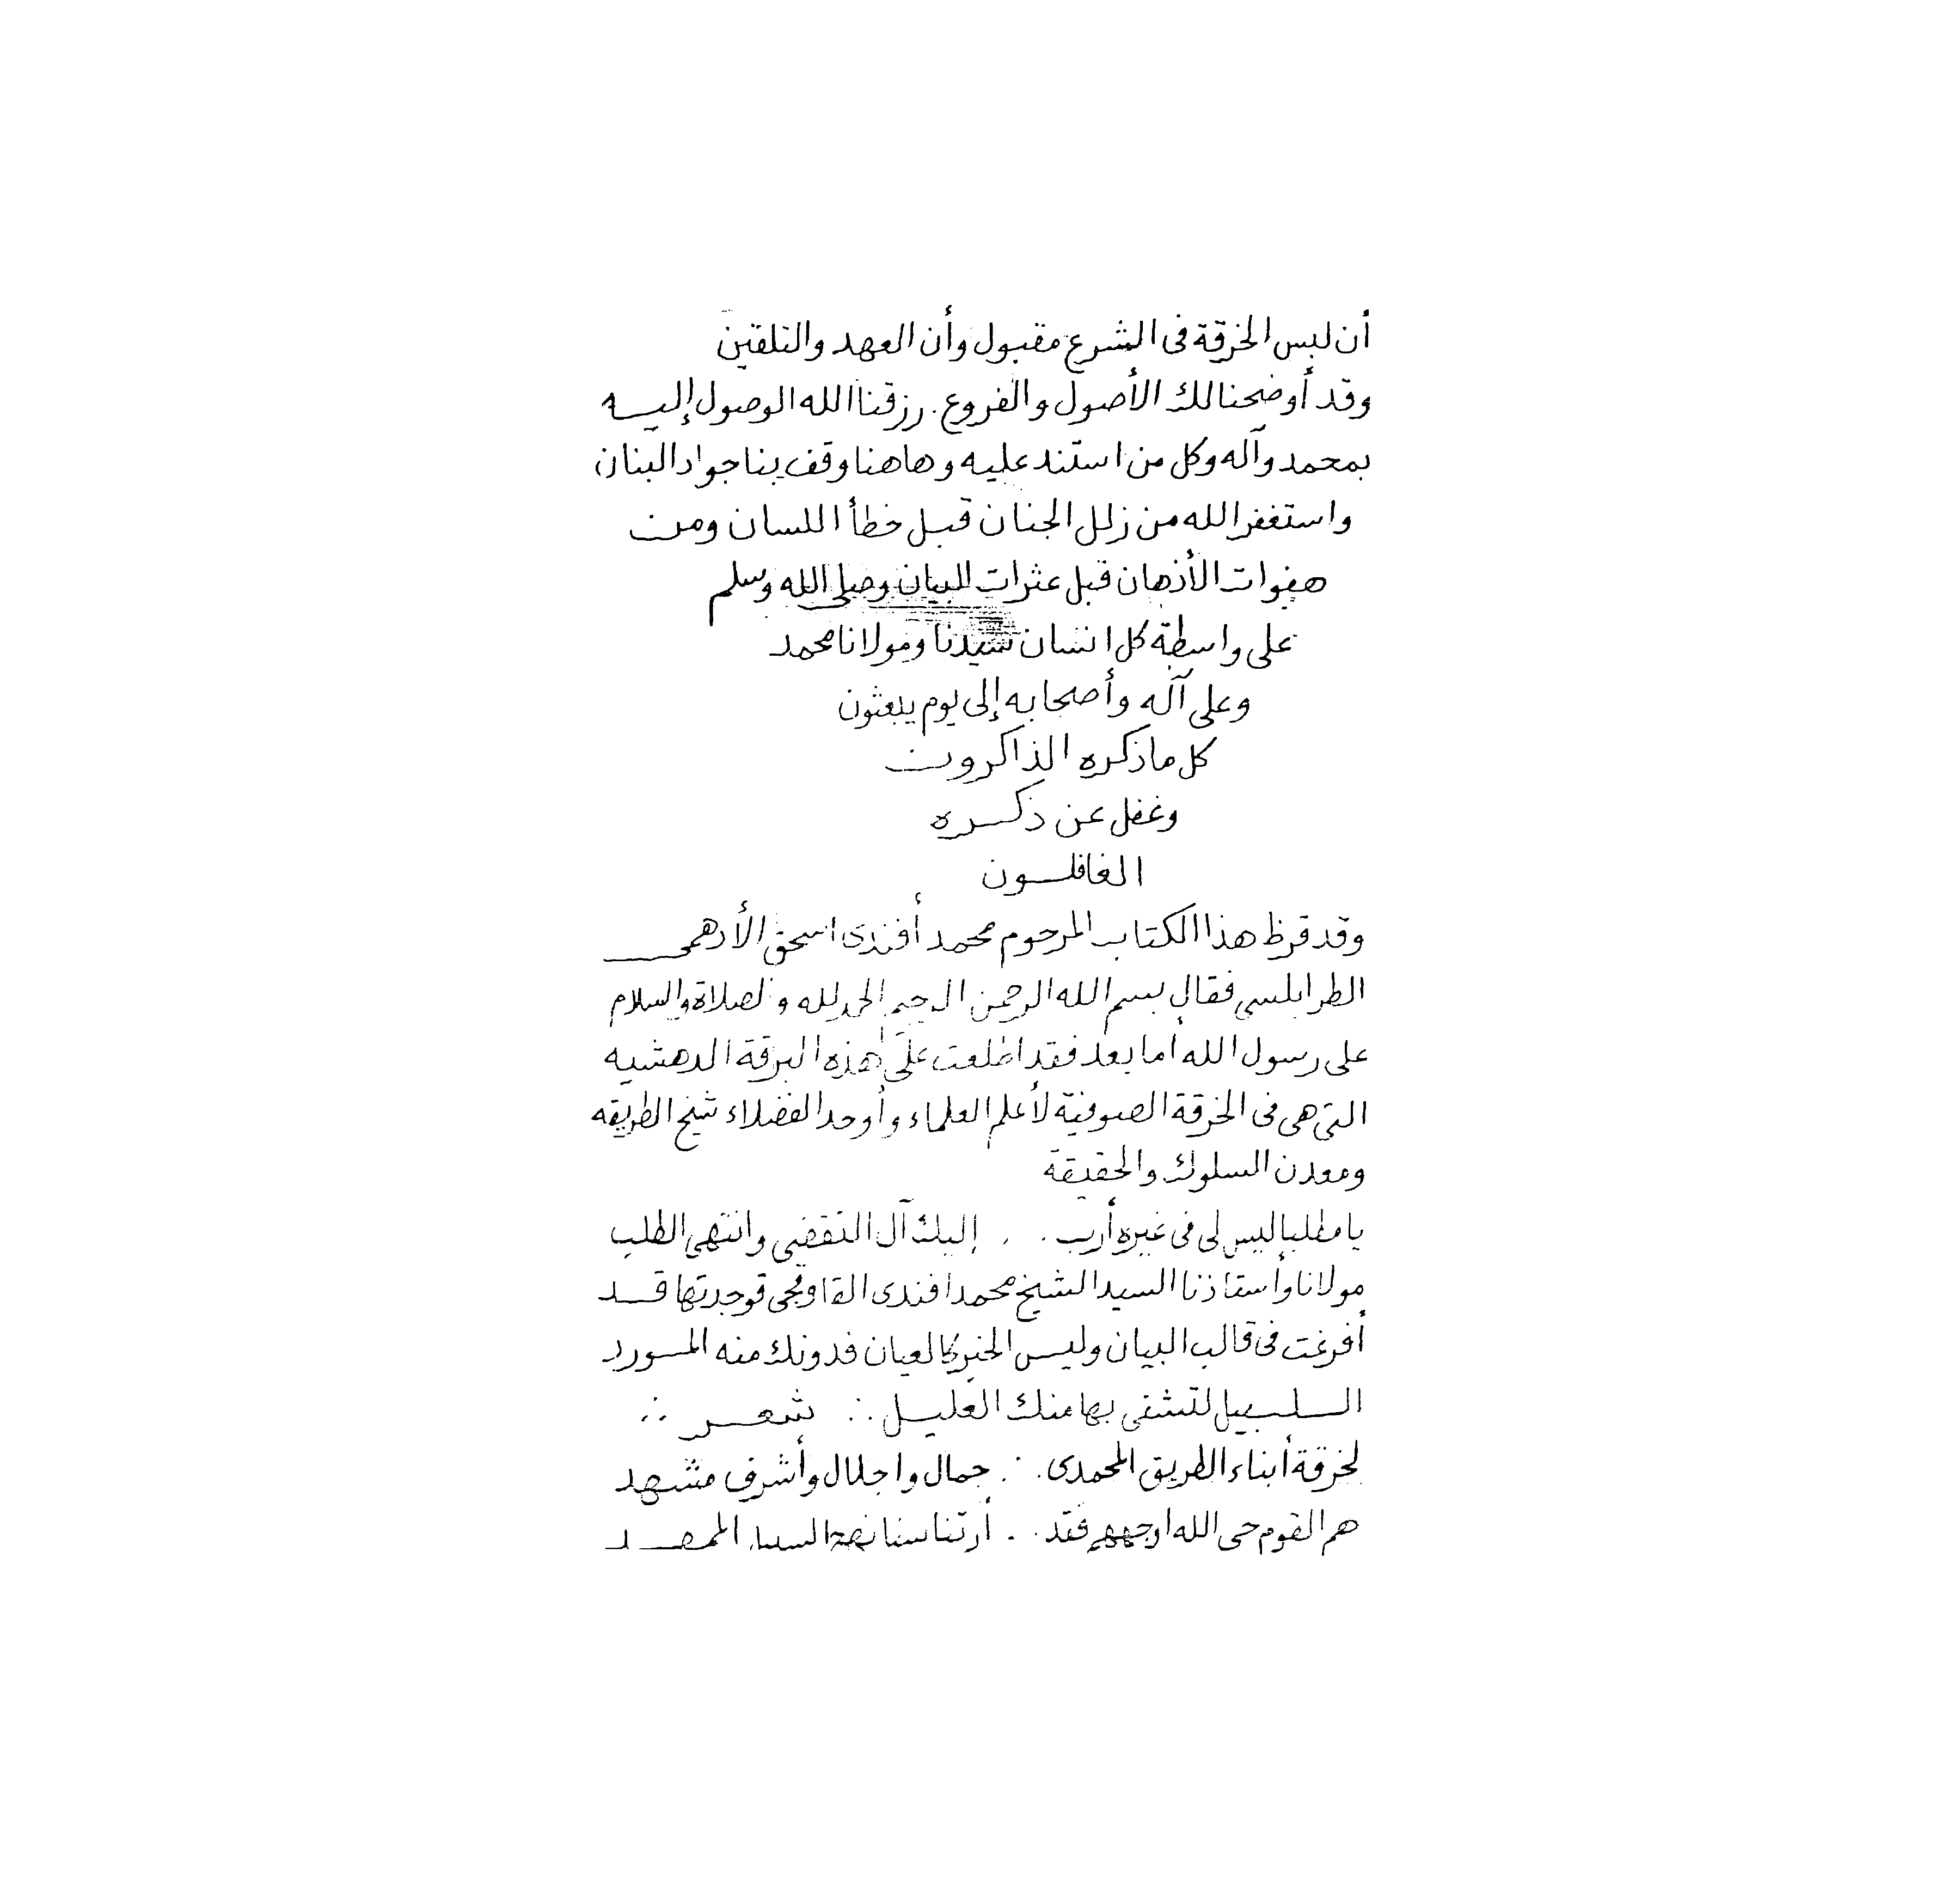 أن لبس الخرقة فى الشرع مقبول وأن العهد والتلقين
وقد أوضحنا لك الأصول والفروع . رزقنا الله الوصول إليه
بمحمد وآله وكل من استند عليه وهاهنا وقف بنا جواد البنان
واستغفر الله من زلل الجنان قبل خطأ اللسان ومن
هفوات الأذهان قبل عثرات البيان وصلى الله وسلم
على واسطة كل انسان سيدنا ومولانا محمد
وعلى آله وأصحابه إلى يوم يبعثون
كل ما ذكره الذاكرون
وغفل عن ذكره
الغافلون
وقد قرظ هذا الكتاب المرحوم محمد أفندى اسحق الأدهمى
الطرابلسى فقال بسم الله الرحمن الرحيم الحمد لله والصلاة والسلام
على رسول الله أما بعد فقد اطلعت على هذه البرقة الدهشيه
التى هى فى الخرقة الصوفية لأعلم العلماء وأوحد الفضلاء شيخ الطريقه
ومعدن السلوك والحقيقة
يا مطلبا ليس لى فى غيره أرب . . إليك آل التقضى وانتهى الطلب
مولانا وأستاذنا السيد الشيخ محمد افندى القاوقجى فوجدتها قد
أفرغت فى قالب البيان وليس الخبر كالعيان فدونك منه المورد
السلسبيل لتشفى بها منك الغليل ∴ شعر ∴
لخرقة أبناء الطريق المحمدى . ∴ جمال واجلال وأشرف مشهد
هم القوم حى الله اوجههم فقد . . أرتنا سنا نهج السبيل الممهد